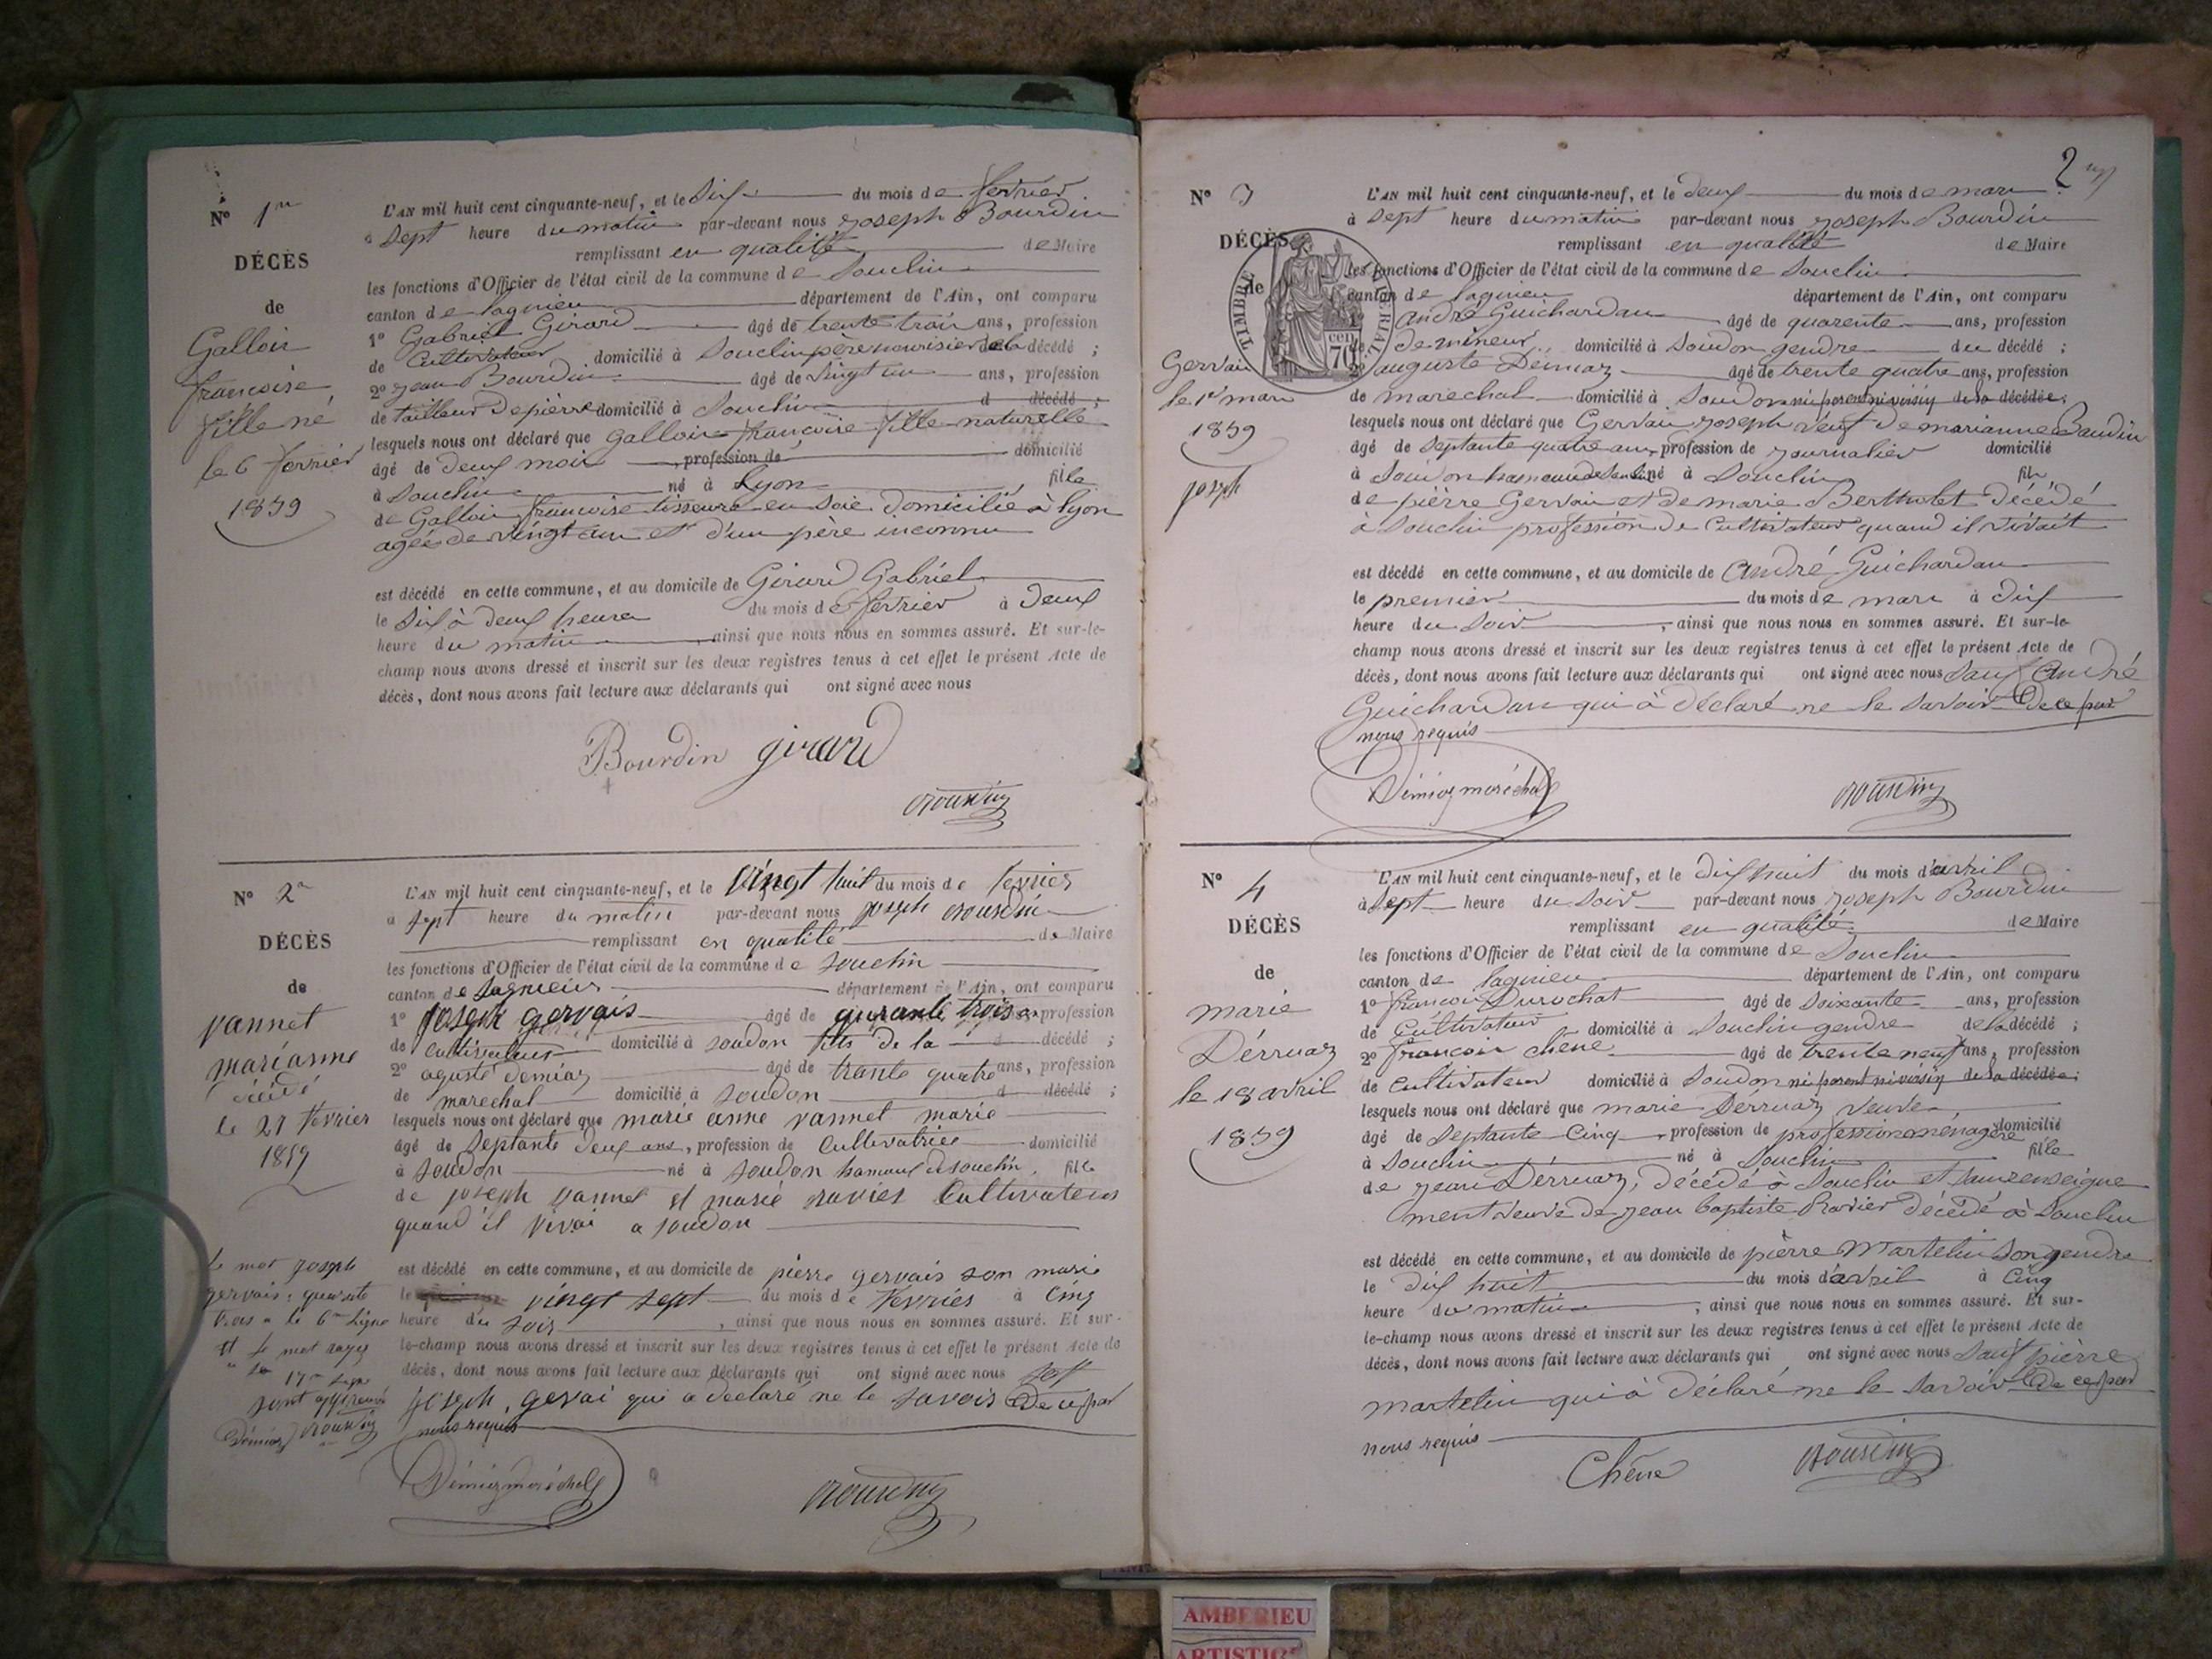 N° 1er
DÉCÈS
de
Galloir
françoise
fille né
le 6 fevrier
1859
L'AN mil huit cent cinquante-neuf, et le Six du mois de fevrier
à Sept heure du matin par-devant nous Joseph Bourdin
remplissant en qualité de Maire
les fonctions d'Officier de l'état civil de la commune de Souclin
canton de lagnieu département de l'Ain, ont comparu
1° Gabriel Girard âgé de trente trois ans, profession
de Cultivateur domicilié à Souclin père nourisier de la décédé ;
2° Jean Bourdin âgé de vingt un ans, profession
de tailleur de pièrre domicilié à Souclin d décédé ;
lesquels nous ont déclaré que Galloir françoise fille naturelle
âgé de deux mois , profession de domicilié
à Souclin né à Lyon fille
de Galloir françoise tisseure en Soie domicilié à lyon
agée de vingt un et d'un père inconnu
est décédé en cette commune, et au domicile de Girard Gabriel
le Six à deux heure du mois de fevrier à deux
heure du matin , ainsi que nous nous en sommes assuré. Et sur-le-
champ nous avons dressé et inscrit sur les deux registres tenus à cet effet le présent Acte de
décès, dont nous avons fait lecture aux déclarants qui ont signé avec nous
Bourdin girard
Bourdin
N° 2
DÉCÈS
de
vannet
marianne
décédé
le 27 fevrier
1859
L'AN mil huit cent cinquante-neuf, et le vingt huit du mois de fevrier
à sept heure du matin par-devant nous joseph Bourdin
remplissant en qualité de Maire
les fonctions d'Officier de l'état civil de la commune de souclin
canton de Lagnieu département de l'Ain, ont comparu
1° joseph gervais âgé de qurante trois ans profession
de cultivateur domicilié à soudon fils de la décédé ;
2° aguste demiaz âgé de trante quatre ans, profession
de marechal domicilié à soudon d décédé ;
lesquels nous ont déclaré que marie anne vannet marie
âgé de septante deux ans, profession de Cultivatrice domicilié
à soudon né à soudon hamaux de souclin, fille
de joseph vannet et marie ravier Cultivateur
quand il vivai a soudon
est décédé en cette commune, et au domicile de pierre gervais son marie
le vingt sept du mois de fevrier à Cinq
heure du soir , ainsi que nous nous en sommes assuré. Et sur-
le-champ nous avons dressé et inscrit sur les deux registres tenus à cet effet le présent Acte de
décès, dont nous avons fait lecture aux déclarants qui ont signé avec nous
joseph, gervai qui a declaré ne le savoir de ce par
nous requis
le mot joseph
gervais, quarante
trois a la 6me ligne
et le mot rayé
a la 17me ligne
sont approuvé
Démiaz Bourdin
Démiaz maréchal
Bourdin
2
N° 3
DÉCÈS
de
TIMBRE IMPÉRIAL
70 cen
Gervai
le 1er mars
1859
joseph
L'AN mil huit cent cinquante-neuf, et le deux du mois de mars
à sept heure du matin par-devant nous Joseph Bourdin
remplissant en qualité de Maire
les fonctions d'Officier de l'état civil de la commune de Souclin
canton de lagnieu département de l'Ain, ont comparu
1° André Guichardan âgé de quarente ans, profession
de mineur domicilié à Soudon gendre du décédé ;
2° auguste Démiaz âgé de trente quatre ans, profession
de marechal domicilié à Soudon ni parent ni voisin de la décédée ;
lesquels nous ont déclaré que Gervai joseph veuf de marianne Baudin
âgé de Septante quatre ans, profession de journalier domicilié
à Soudon hameau de Souclin né à Souclin fils
de pièrre Gervai et de marie Berthelet décédé
à Souclin profession de Cultivateur quand il vivait
est décédé en cette commune, et au domicile de André Guichardan
le premier du mois de mars à dix
heure du Soir , ainsi que nous nous en sommes assuré. Et sur-le-
champ nous avons dressé et inscrit sur les deux registres tenus à cet effet le présent Acte de
décès, dont nous avons fait lecture aux déclarants qui ont signé avec nous Sauf André
Guichardan qui à déclaré ne le Savoir de ce par
nous requis
Démiaz maréchal
Bourdin
N° 4
DÉCÈS
de
marie
Dérruaz
le 18 avril
1859
L'AN mil huit cent cinquante-neuf, et le dix huit du mois d'avril
à Sept heure du Soir par-devant nous Joseph Bourdin
remplissant en qualité de Maire
les fonctions d'Officier de l'état civil de la commune de Souclin
canton de lagnieu département de l'Ain, ont comparu
1° françois Durochat âgé de Soixante ans, profession
de Cultivateur domicilié à Souclin gendre de la décédé ;
2° françois chene âgé de trente neuf ans, profession
de Cultivateur domicilié à Soudon ni parent ni voisin de la décédée ;
lesquels nous ont déclaré que marie Dérruaz veuve
âgé de Septante Cinq , profession de profession ménagère domicilié
à Souclin né à Souclin fille
de jean Dérruaz, décédé à Souclin et Sans renseigne
ment veuve de jean baptiste Ravier décédé à Souclin
est décédé en cette commune, et au domicile de pièrre Martelin Son gendre
le dix huit du mois d'avril à Cinq
heure du matin , ainsi que nous nous en sommes assuré. Et sur-
le-champ nous avons dressé et inscrit sur les deux registres tenus à cet effet le présent Acte de
décès, dont nous avons fait lecture aux déclarants qui ont signé avec nous Sauf pièrre
martelin qui à déclaré ne le Savoir de ce par
nous requis
Chene
Bourdin
AMBERIEU
ARTISTIQUE